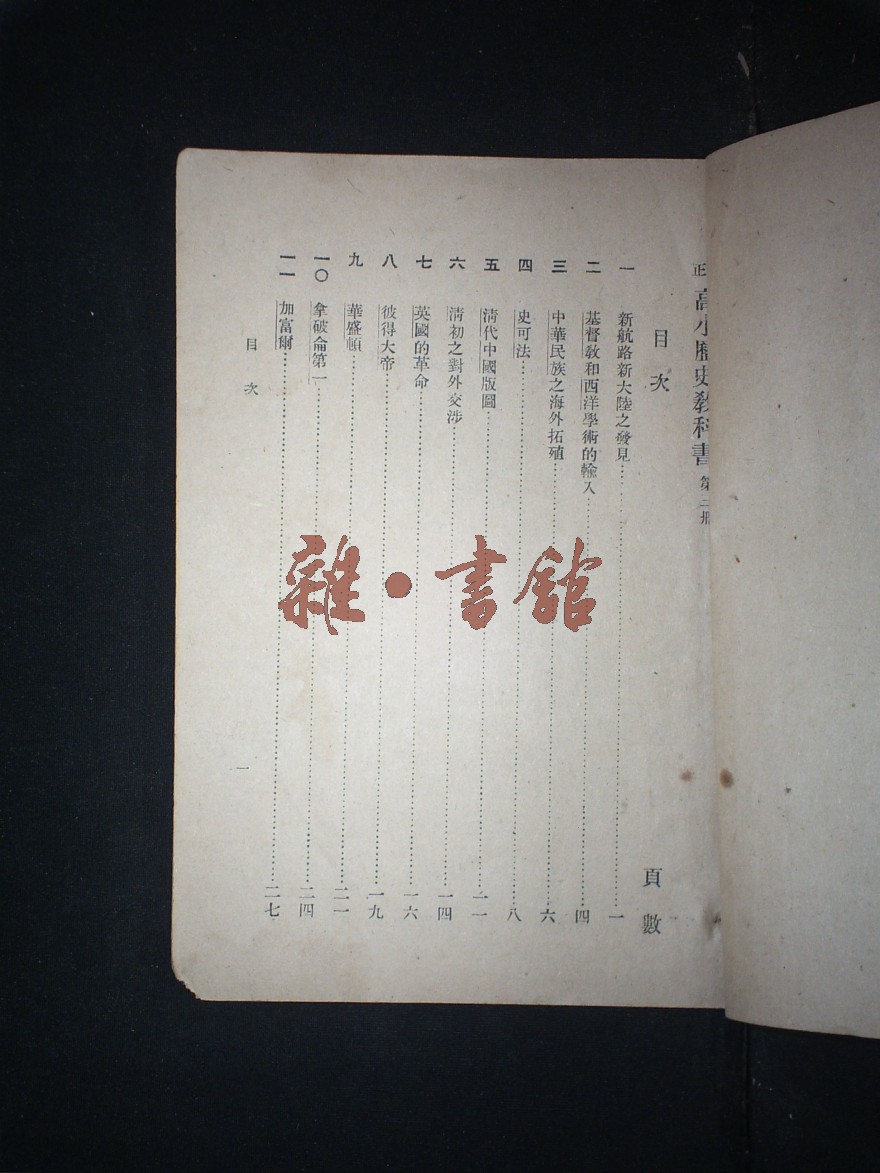 正 高小歷史教科書
目次 頁數
一 新航路新大陸之發見……一
二 基督教和西洋學術的輸入……四
三 中華民族之海外拓殖……六
四 史可法……八
五 清代中國版圖……一一
六 清初之對外交涉……一四
七 英國的革命……一六
八 彼得大帝……一九
九 華盛頓……二一
一〇 拿破侖第一……二四
一一 加富爾……二七
目次 一
雜·書館